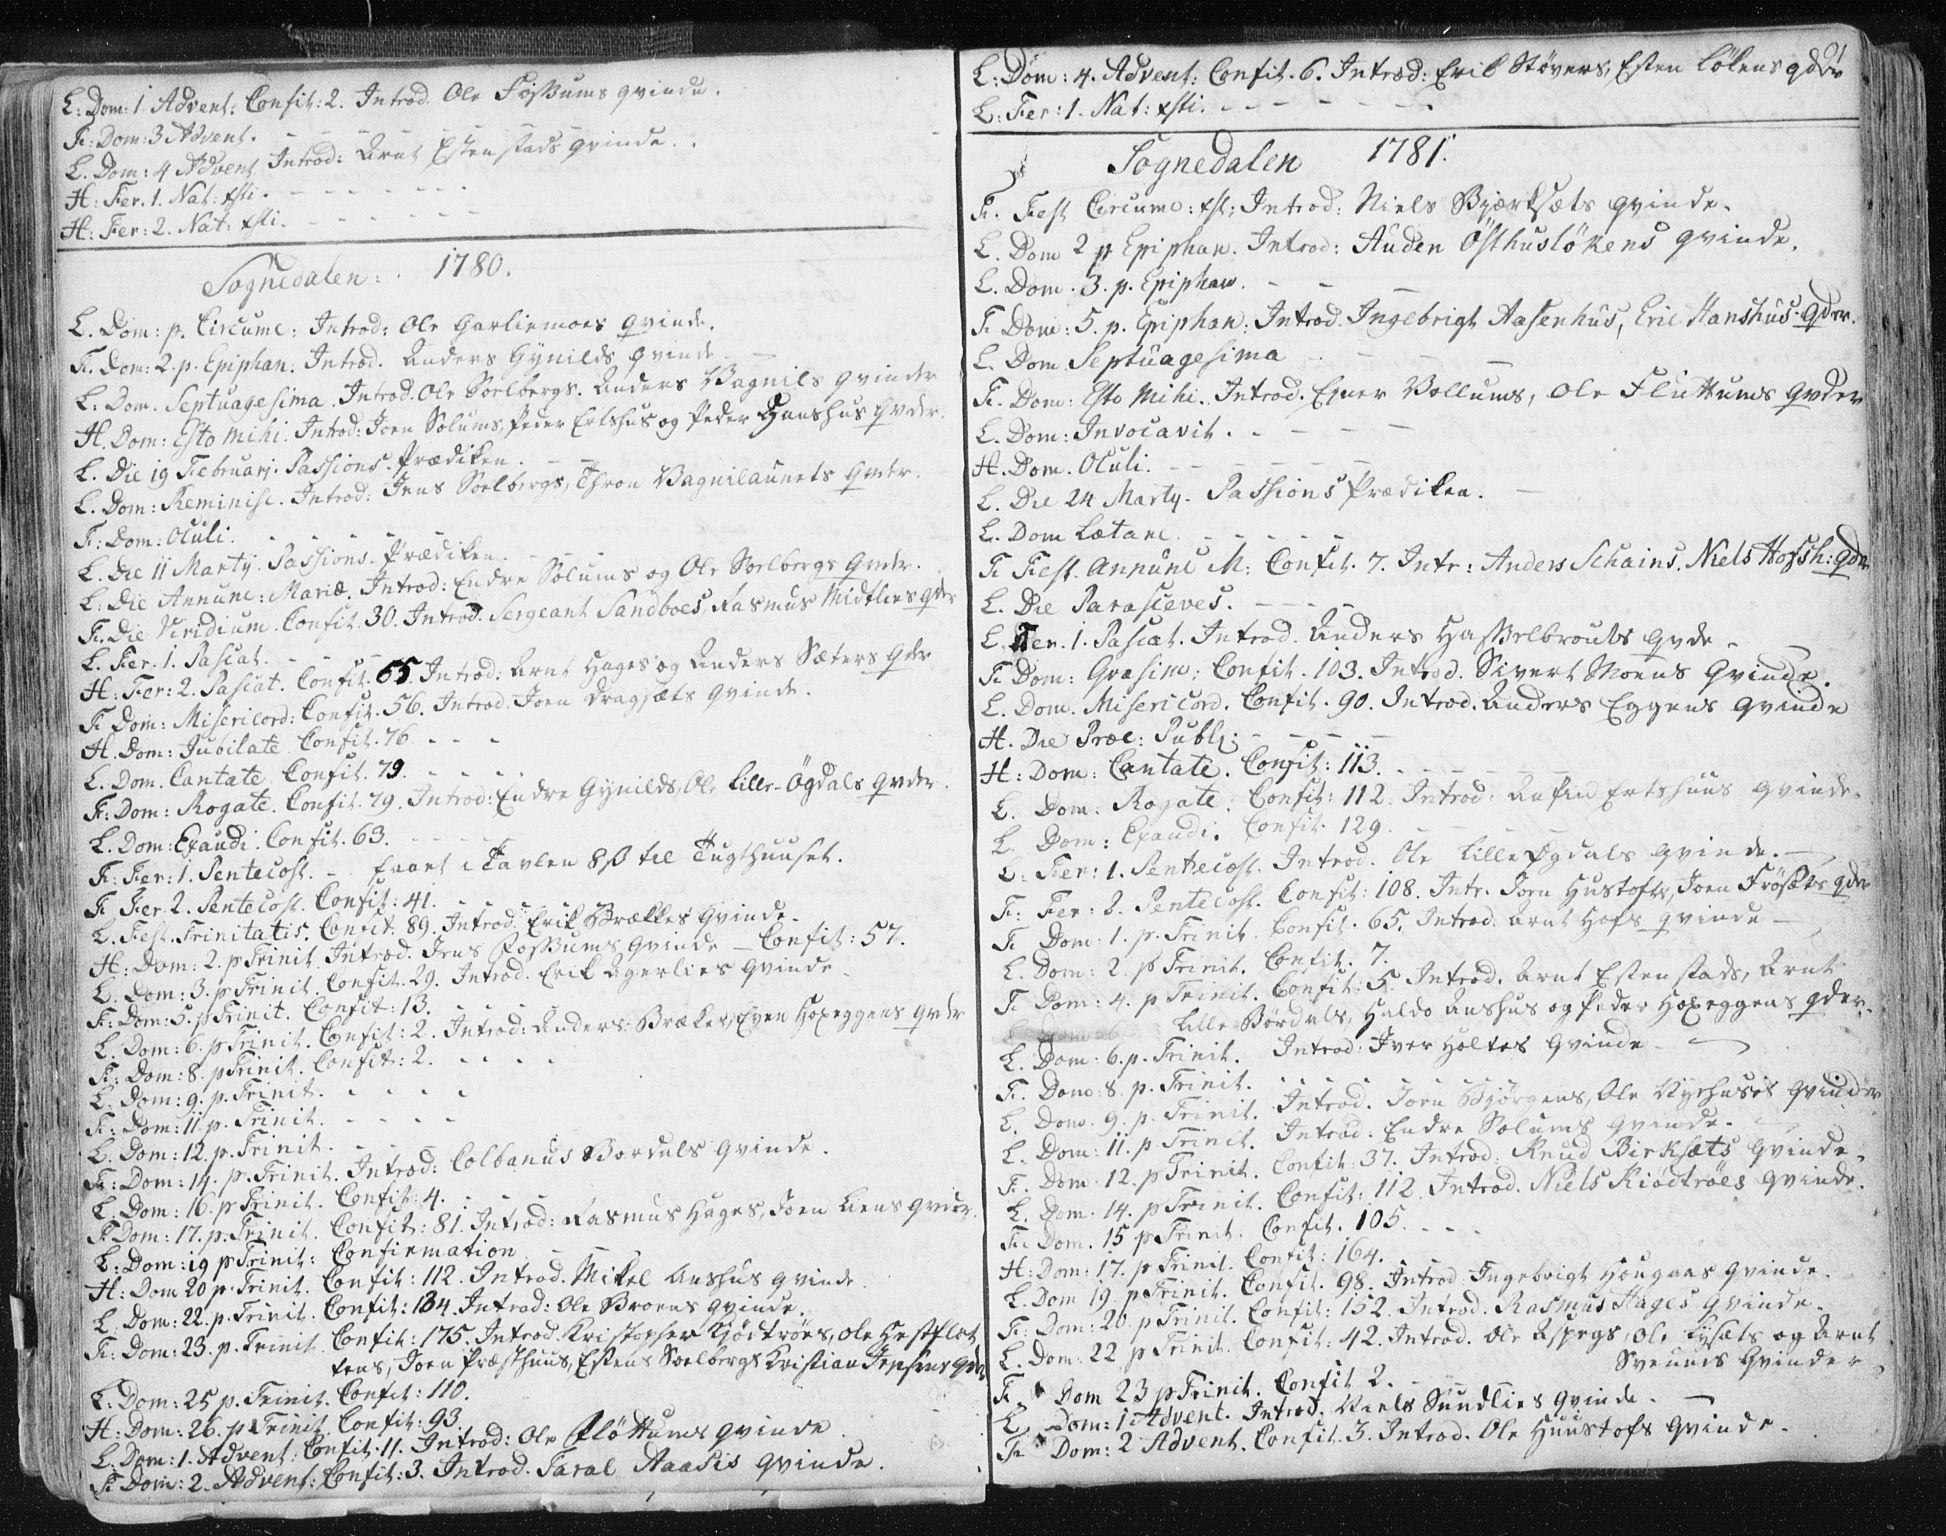 L: Dom: 1. Advent: Confit: 2. Introd. Ole Fossums qvinde.
Fr: Dom: 3 Advent. - - -
L. Dom: 4 Advent Introd: Arnt Estenstads qvinde.
H: Fer. 1. Nat: xsti. - - -
H: Fer: 2. Nat: xsti. - - -
Sognedalen: 1780.
L. Dom: p. Circumc: Introd: Ole Garliemoes qvinde.
Fr. Dom: 2. p. Epiphan. Introd. Anders Gynilds qvinde
L: Dom. Septuagesima. Introd. Ole Soelbergs. Anders Vagnils qvinder
H. Dom: Esto mihi. Introd: Joen Solums, Peder Ertshus og Peder Hanshus Qvder.
L. Die 19 Februarj. Passions-Prædiken.
L. Dom: Reminisc. Introd: Jens Soelbergs, Thron Vagnilaunets Qvdr.
Fr: Dom: Oculi. - - -
L. Die 11 Martij. Passions-Prædiken.
L: Die Annunc: Mariæ. Introd: Endre Solums og Ole Soelbergs Qvdr.
Fr. Die Viridium. Confit. 30. Introd. Sergeant Sandboes, Rasmus Midtlies qvdr
L. Fer. 1. Pascat. - - -
H: Fer: 2. Pascat. Confit. 65 Introd: Arnt Hages og Anders Sæters Qvdr
Fr Dom: Misericord: Confit. 56. Introd. Joen Dragsæts qvinde.
H. Dom: Jubilate Confit. 76 - - -
L. Dom. Cantate Confit. 79. - - -
Fr: Dom: Rogate. Confit. 79. Introd: Endre Gynilds, Ole Lille-Øgdals qvder.
L. Dom: Exaudi. Confit. 63. - - -
Fr: Fer: 1. Pentecost. - faaet i Tavlen 8 ß til Tugthuuset.
Fr Fer 2. Pentecost. Confit: 41. - - -
L. Fest. Trinitatis. Confit. 89. Introd: Erik Brækkes Qvinde.
H: Dom: 2. p Trinit. Introd. Jens Fossums Qvinde - Confit: 57.
L. Dom: 3. p Trinit. Confit. 29. Introd. Erik Agerlies Qvinde.
Fr: Dom: 5. p Trinit. Confit: 13. - - -
L. Dom: 6. p Trinit. Confit: 2. Introd: Anders Brækes, Even Hoxeggens Qvdr
Fr: Dom: 8. p Trinit. Confit: 2. - - -
L. Dom: 9. p. Trinit. - - -
Fr: Dom: 11. p. Trinit. - - -
L. Dom: 12. p. Trinit. - - -
Fr: Dom: 14. p. Trinit. Introd: Colbanus Bordals qvinde.
L. Dom: 16. p Trinit. Confit: 4. - - -
Fr Dom: 17. p. Trinit. Confit: 81. Introd: Rasmus Hages, Joen Liens qvder.
L: Dom: 19 p Trinit: Confirmation
H: Dom 20 p. Trinit. Confit: 112. Introd. Mikel Aushus qvinde
L. Dom: 22. p. Trinit. Confit: 134. Introd: Ole Broens qvinde.
Fr: Dom: 23. p. Trinit Confit: 175. Introd. Kristopher Kjödtröes, Ole Hestflot
tens, Joen Præsthuus, Estens Soelbergs Kristian Jensens qvdr
L. Dom: 25 p. Trinit. Confit: 110.
H: Dom: 26. p Trinit. Confit: 93.
L. Dom: 1. Advent: Confit. 11. Introd: Ole Flöttums qvinde
Fr Dom: 2. Advent: Confit: 3. Introd. Taral Aasis qvinde.
L: Dom: 4. Advent: Confit. 6. Introd: Erik Støvers, Esten Lölens qvdr
L: Fer: 1. Nat: xsti. - - -
Sognedalen 1781.
Fr. Fest Circumc: xst; Introd: Niels Bjærksæts qvinde.
L. Dom 2 p Epiphan. Introd: Auden Østhuslökens qvinde.
L. Dom. 3. p. Epiphan. - - -
Fr Dom: 5. p. Epiphan. Introd. Ingebrigt Aasenhus, Eric Hanshus Qder.
L. Dom. Septuagesima - - -
Fr. Dom: Esto mihi. Introd. Ejner Vollums, Ole Fluttums Qvder
L. Dom: Invocavit. - - -
H. Dom. Oculi. - - -
L. Die 24 Martij. Passions Prædiken. -
L. Dom Lætare. - - -
Fr Fest. Annunc M: Confit. 7. Intr: Anders Schains. Niels Hofsh: qdr
L. Die Parasceves. - - -
L Fer. 1. Pascat. Introd. Anders Hasselbrouks qvde
Fr Dom: Qvasim: Confit. 103. Introd. Sivert Moens Qvinde.
L. Dom. Misericord. Confit. 90. Introd. Anders Eggens qvinde
H. Die Præc: Publ: - - -
H: Dom: Cantate. Confit: 113. - - -
L. Dom: Rogate. Confit: 112. Introd: Anfind Ertshuus qvinde.
L. Dom: Exaudi. Confit. 129. - - -
L: Fer: 1. Pentecost. Introd. Ole Lilleøgdals qvinde.
Fr: Fer: 2. Pentecost. Confit: 108. Intr. Joen Hustofts, Joen Frösets qder
Fr Dom: 1. p. Trinit. Confit. 65. Introd. Arnt Hofs qvinde
L. Dom: 2. p Trinit. Confit. 7.
Fr Dom: 4. p Trinit. Confit: 5. Introd. Arnt Estenstads, Arnt
Lille Bördals, Haldo Aushus og Peder Hoxeggens qder.
L. Dom: 6. p. Trinit. Introd: Iver Holtes Qvinde
Fr. Dom: 8. p. Trinit. - - -
L. Dom. 9. p. Trinit. Introd. Joen Bjørgens, Ole Nyehuset qvinder
L. Dom: 11. p Trinit. Introd: Endre Solums qvinde.
Fr. Dom 12. p Trinit. Confit: 37. Introd: Knud Birksæts qvinde.
L. Dom: 14. p Trinit. Confit: 112. Introd. Niels Kiödtröes qvinde.
Fr: Dom. 15 p Trinit. Confit. 105. - - -
H: Dom: 17. p Trinit. Confit: 164.
L. Dom 19. p Trinit. Confit. 98. Introd Ingebrigt Hougans qvinde.
Fr: Dom: 20. p Trinit. Confit: 152. Introd. Rasmus Hages qvinde.
L. Dom: 22 p Trinit. Confit: 42. Introd. Ole Aspegs, Ole Lysæts og Arnt
Sveunes Qvinder
Fr. Dom 23 p Trinit. Confit 2.
L Dom: 1 Advent. Introd. Niels Sundlies qvinde.
Fr Dom: 2 Advent. Confit. 3. Introd. Ole Huustofs qvinde.